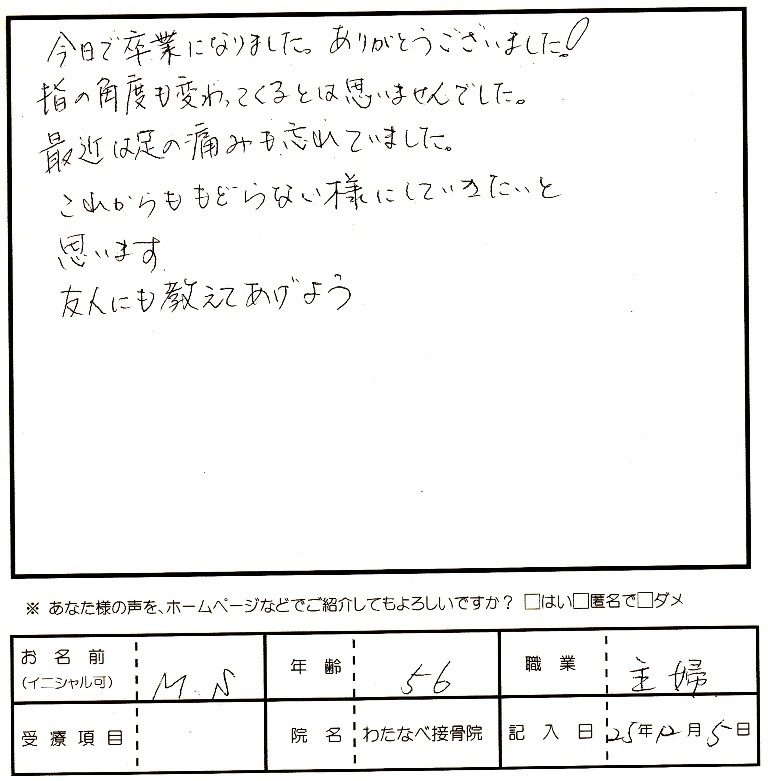 今日で卒業になりました。ありがとうございました!
指の角度も変わってくるとは思いませんでした。
最近は足の痛みも忘れていました。
これからももどらない様にしていきたいと
思います
友人にも教えてあげよう
※ あなた様の声を、ホームページなどでご紹介してもよろしいですか? □はい□匿名で□ダメ
お名前 (イニシャル可) M.N 年齢 56 職業 主婦
受療項目 院名 わたなべ接骨院 記入日 25年12月5日